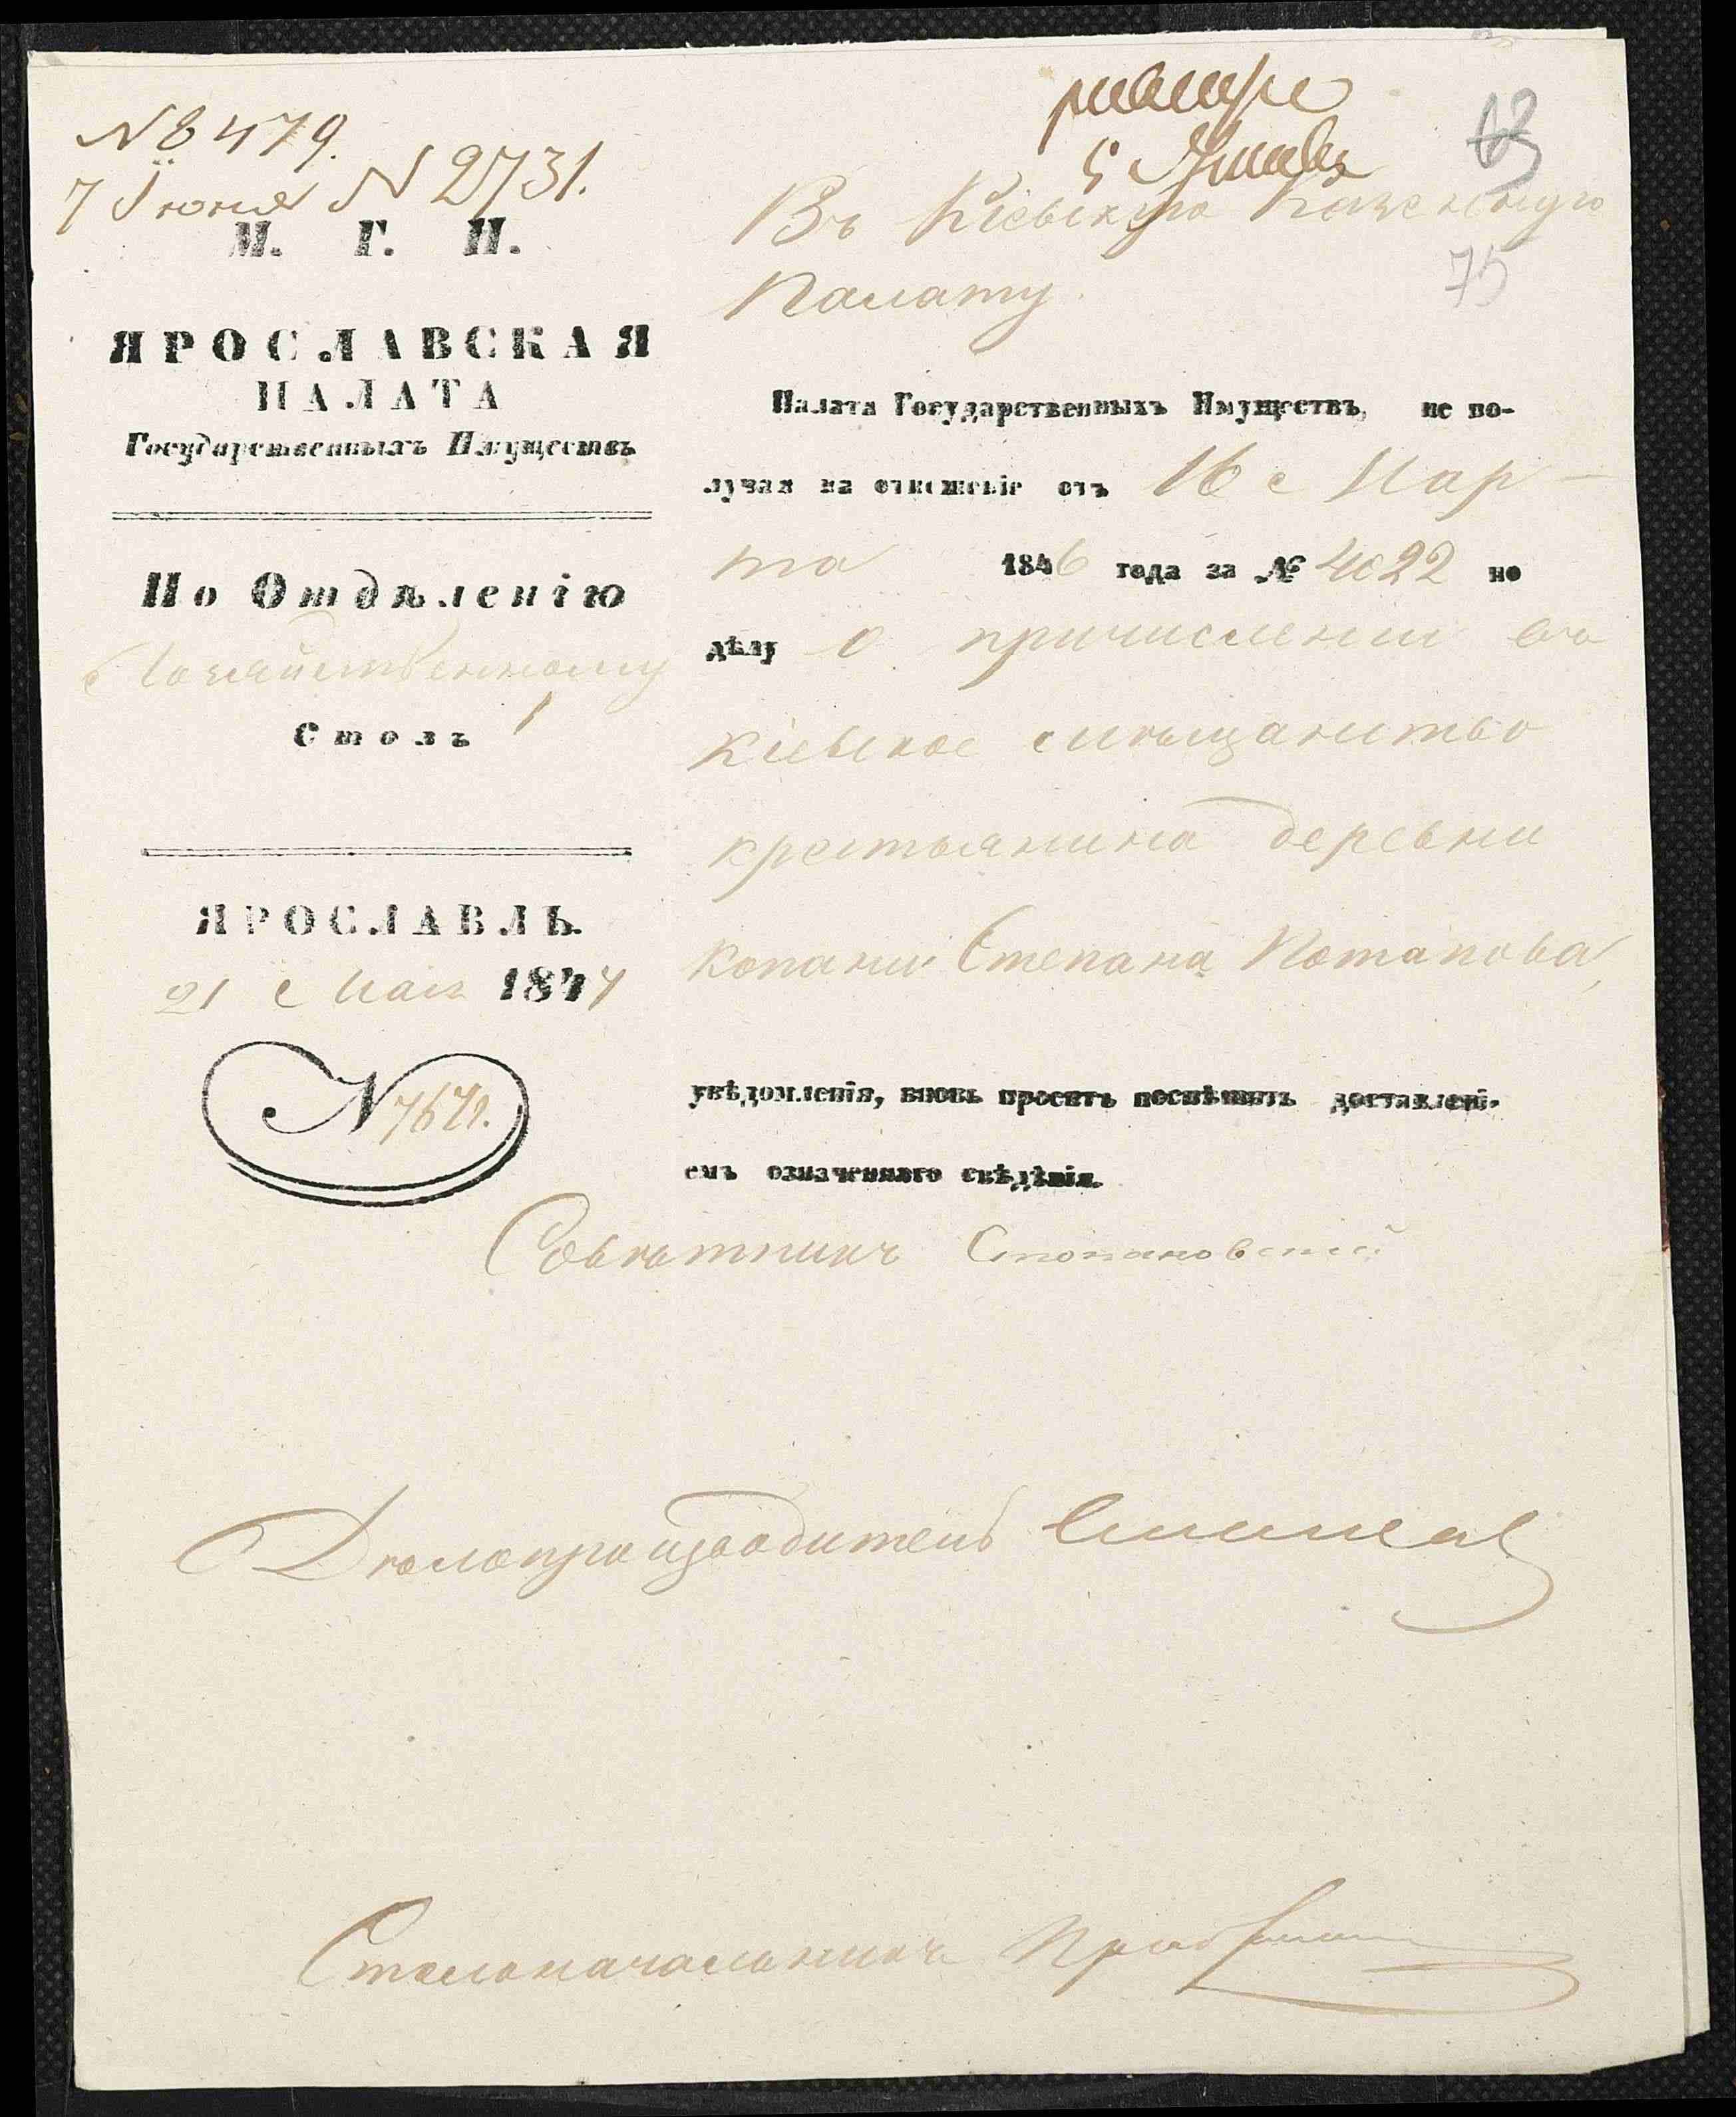 № 8479.
7 Іюня № 2731.
М. Г. И.
ЯРОСЛАВСКАЯ
ПАЛАТА
Государственныхъ Имуществъ
По Отдѣленію
Хозяйственному
Столъ 1
ЯРОСЛАВЛЬ.
21 Мая 1847
№ 7672.
63
Въ Кіевскую Казенную
75
Палату.
Палата Государственныхъ Имуществъ, не по-
лучая на отношеніе отъ 16 Мар-
та 1846 года за № 4022 по
дѣлу о причисленіи въ
Кіевское мѣщанство
крестьянина деревни
Копани Степана Потапова,
увѣдомленія, вновь проситъ поспѣшить доставлені-
емъ означеннаго свѣдѣнія.
Совѣтникъ
Дѣлопроизводитель
Столоначальникъ